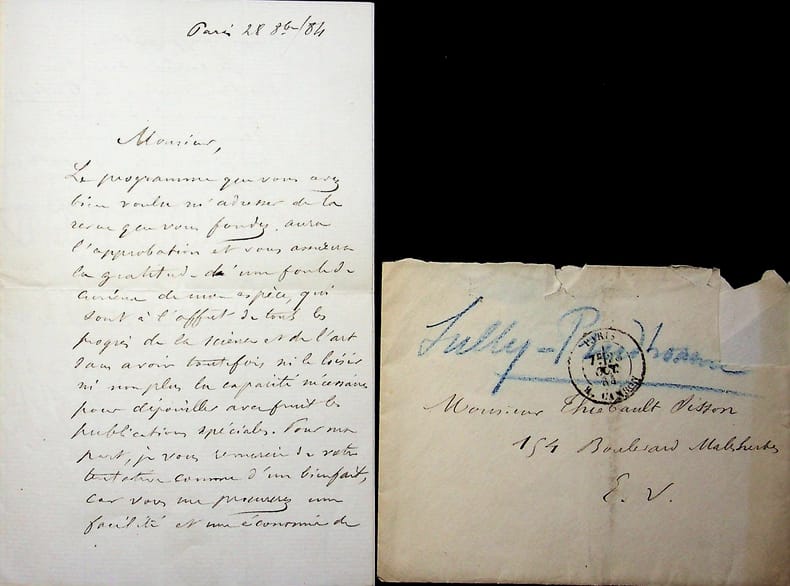 Paris 28 8bre/84
Monsieur,
Le programme que vous avez
bien voulu m'adresser de la
revue que vous fondez, aura
l'approbation et vous assurera
la gratitude d'une foule de
curieux de mon espèce, qui
sont à l'affût de tous les
progrès de la science et de l'art
sans avoir toutefois ni le loisir
ni non plus la capacité nécessaire
pour dépouiller avec fruit les
publications spéciales. Pour ma
part, je vous remercie de votre
tentative comme d'un bienfait,
car vous me procurerez une
facilité et une économie de
Sully-Prudhomme
PARIS
7E 28
OCT
84
R. CAMBON
Monsieur Thiébault Sisson
154 Boulevard Malesherbes
E. V.